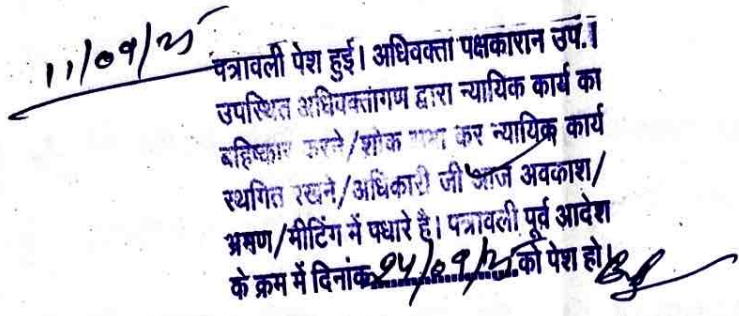 11/09/25
पत्रावली पेश हुई। अधिवक्ता पक्षकारान उप.।
उपस्थित अधिवक्तागण द्वारा न्यायिक कार्य का
बहिष्कार करने/शोक सभा कर न्यायिक कार्य
स्थगित रखने/अधिकारी जी आज अवकाश/
भ्रमण/मीटिंग में पधारे है। पत्रावली पूर्व आदेश
के क्रम में दिनांक 24/09/25 को पेश हो।